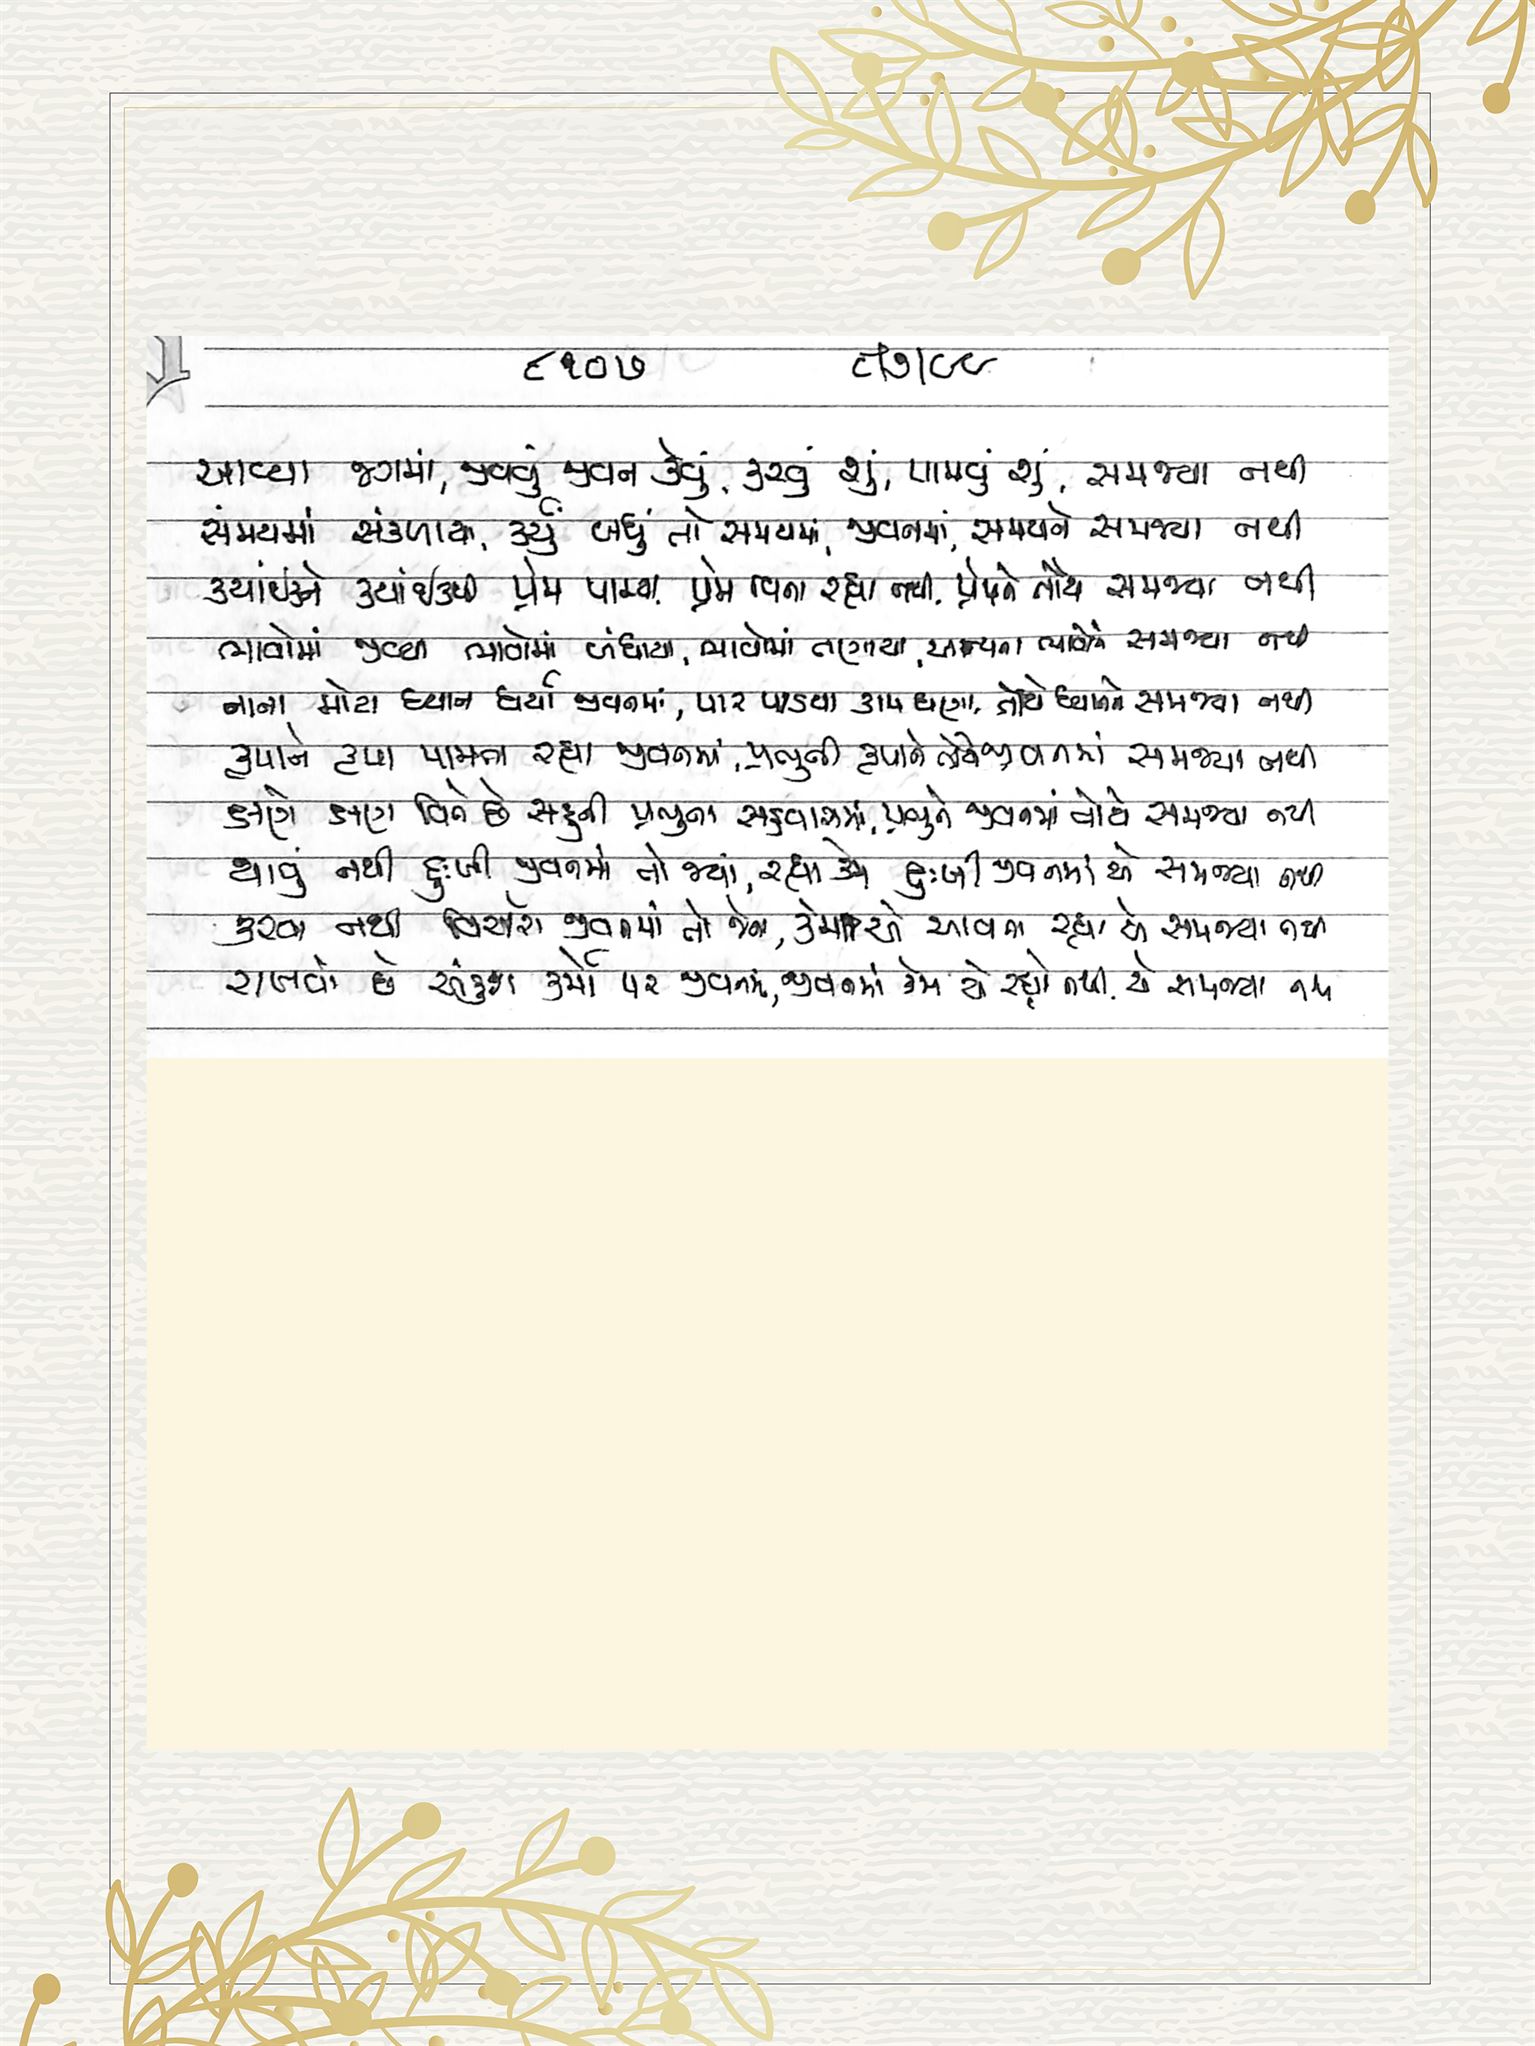 ૮૧૦૭ ૮/૭/૯૯
આવ્યા જગમાં, જીવવું જીવન કેવું, કરવું શું, પામવું શું, સમજ્યા નથી
સંમયમાં સંકળાઈ, કર્યું બધું તો સમયમાં, જીવનમાં, સમયને સમજ્યા નથી
ક્યાંઈકને ક્યાંઈકથી પ્રેમ પામ્યા, પ્રેમ વિના રહ્યા નથી, પ્રેમને તોય સમજ્યા નથી
ભાવોમાં જીવ્યા ભાવોમાં બંધાયા, ભાવોમાં તણાયા, અન્યના ભાવોને સમજ્યા નથી
નાના મોટા ધ્યાન ધર્યા જીવનમાં, પાર પાડવા કામ ઘણા, તોયે ધ્યાનને સમજ્યા નથી
કૃપાને કૃપા પામતા રહ્યા જીવનમાં, પ્રભુની કૃપાને તોયે જીવનમાં સમજ્યા નથી
ક્ષણે ક્ષણ વિતે છે સહુની પ્રભુના સહવાસમાં, પ્રભુને જીવનમાં તોયે સમજ્યા નથી
થાવું નથી દુઃખી જીવનમાં તો જ્યાં, રહ્યા કેમ દુઃખી જીવનમાં એ સમજ્યા નથી
કરવા નથી વિચારો જીવનમાં તો જેના, કેમ એ આવતા રહ્યા એ સમજ્યા નથી
રાખવો છે અંકુશ કર્મો પર જીવનમાં, જીવનમાં કેમ એ રહ્યો નથી, એ સમજ્યા નથી